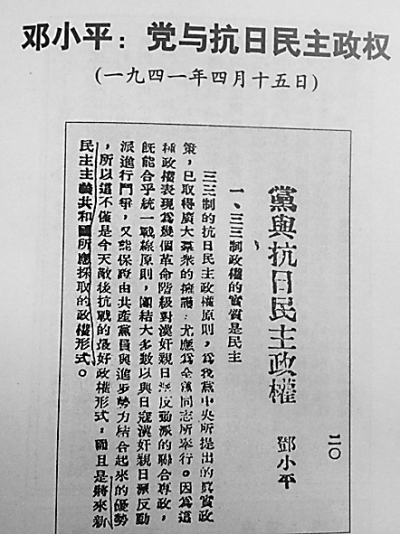 邓小平：党与抗日民主政权
(一九四一年四月十五日)
二〇
黨與抗日民主政權 鄧小平
一、三三制政權的實質是民主
三三制的抗日民主政權原則，為我黨中央所提出的真實政
策，已取得廣大羣衆的擁護，尤應為全黨同志所奉行。因為這
種政權表現為幾個革命階級對漢奸親日派反動派的聯合專政，
既能合乎統一戰線原則，團結大多數以與日寇漢奸親日派反動
派進行鬥爭，又能保證由共產黨員與進步勢力結合起來的優勢
，所以這不僅是今天敵後抗戰的最好政權形式，而且是將來新
民主主義共和國所應採取的政權形式。